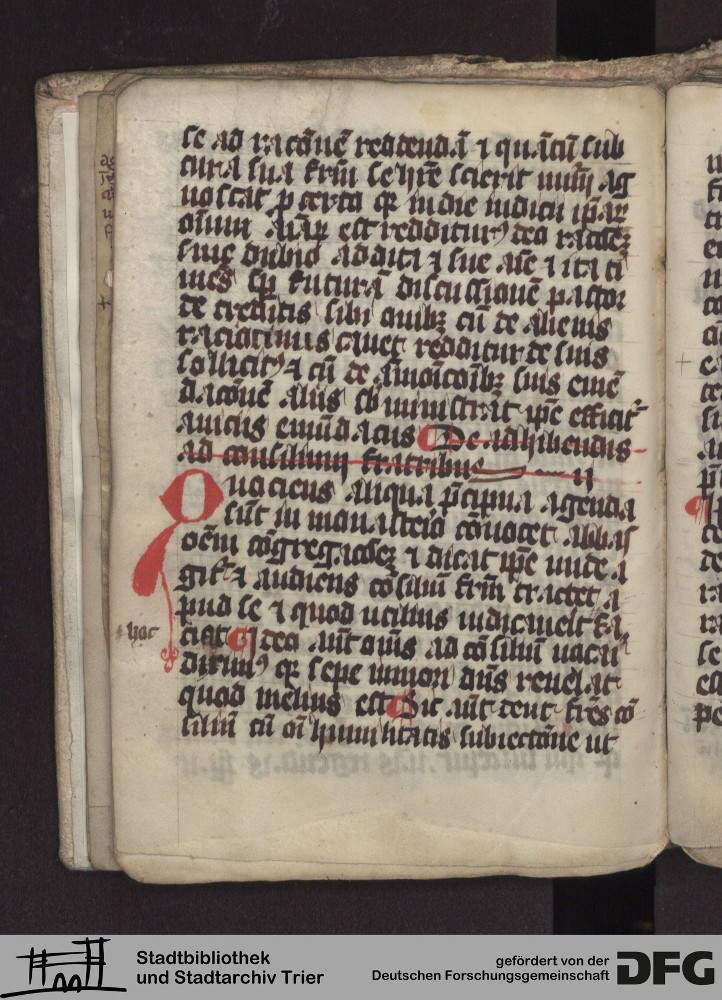 se ad racōnē reddendā ⁊ quātū sub
cura sua frm̄ se hr̄e scierit num̄ ag
noscat p certo qꝛ in die iudicii ip̄aꝝ
oīum aīaꝝ est redditurꝰ deo racōeꝫ
sine dubio addita ⁊ sue aīe ⁊ ita ti
mēs sp̄ futurā discussionē pastor
de creditis sibi ouibꝫ cū de alienis
raciociniis cauet redditur de suis
sollicitꝰ ⁊ cū de āmōicōibꝫ suis emē
dacōnē aliis sb ministrat ip̄e efficit᷑
a uiciis emūdatus De adhibendis
ad consilium fratribus
Quociens aliqua p̄cipua agenda
sūt in monasterio cōuocet abbas
oēm cōgregacōeꝫ ⁊ dicat ip̄e unde a
git᷑ ⁊ audiens cōsiliū frm̄ tractet a
pud se ⁊ quod utilius iudicauerit fa
hoc
ciat Ideo aūt oīms ad cōsiliū uocari
diximꝰ qꝛ sepe iuniori dn̄s reuelat
quod melius est Sic aūt dent fr̄es cō
siliū cū oī humilitatis subiectōne ut
Stadtbibliothek
und Stadtarchiv Trier
gefördert von der
Deutschen Forschungsgemeinschaft
DFG